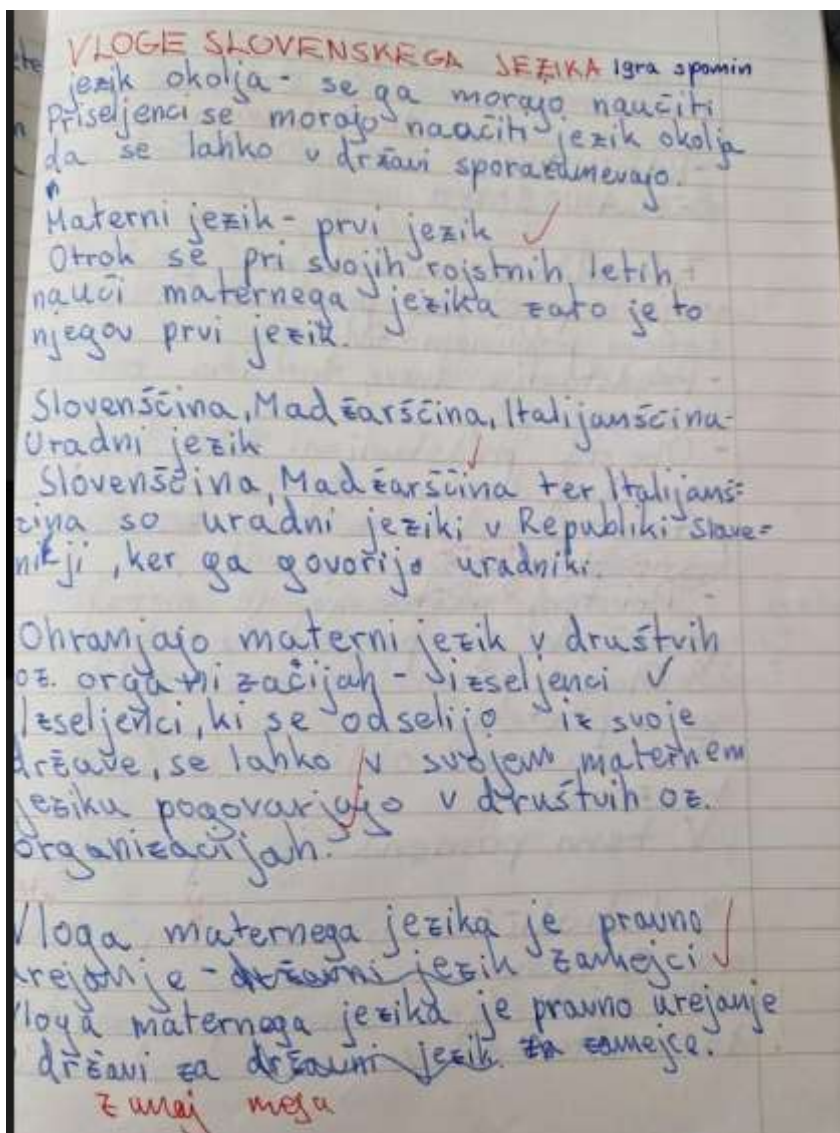 VLOGE SLOVENSKEGA JEZIKA Igra spomin
jezik okolja - se ga morajo naučiti
Priseljenci se morajo naučiti jezik okolja
da se lahko v državi sporazumevajo.
Materni jezik - prvi jezik
Otrok se pri svojih rojstnih letih
nauči maternega jezika zato je to
njegov prvi jezik.
Slovenščina, Madžarščina, Italijanščina -
Uradni jezik
Slovenščina, Madžarščina ter Italijanš=
čina so uradni jeziki v Republiki Slove=
niji, ker ga govorijo uradniki.
Ohranjajo materni jezik v društvih
oz. organizacijah - izseljenci
Izseljenci, ki se odselijo iz svoje
države, se lahko v svojem maternem
jeziku pogovarjajo v društvih oz.
organizacijah.
Vloga maternega jezika je pravno
urejanje - državni jezik zamejci
Vloga maternega jezika je pravno urejanje
državi za državni jezik za zamejce.
zunaj meja